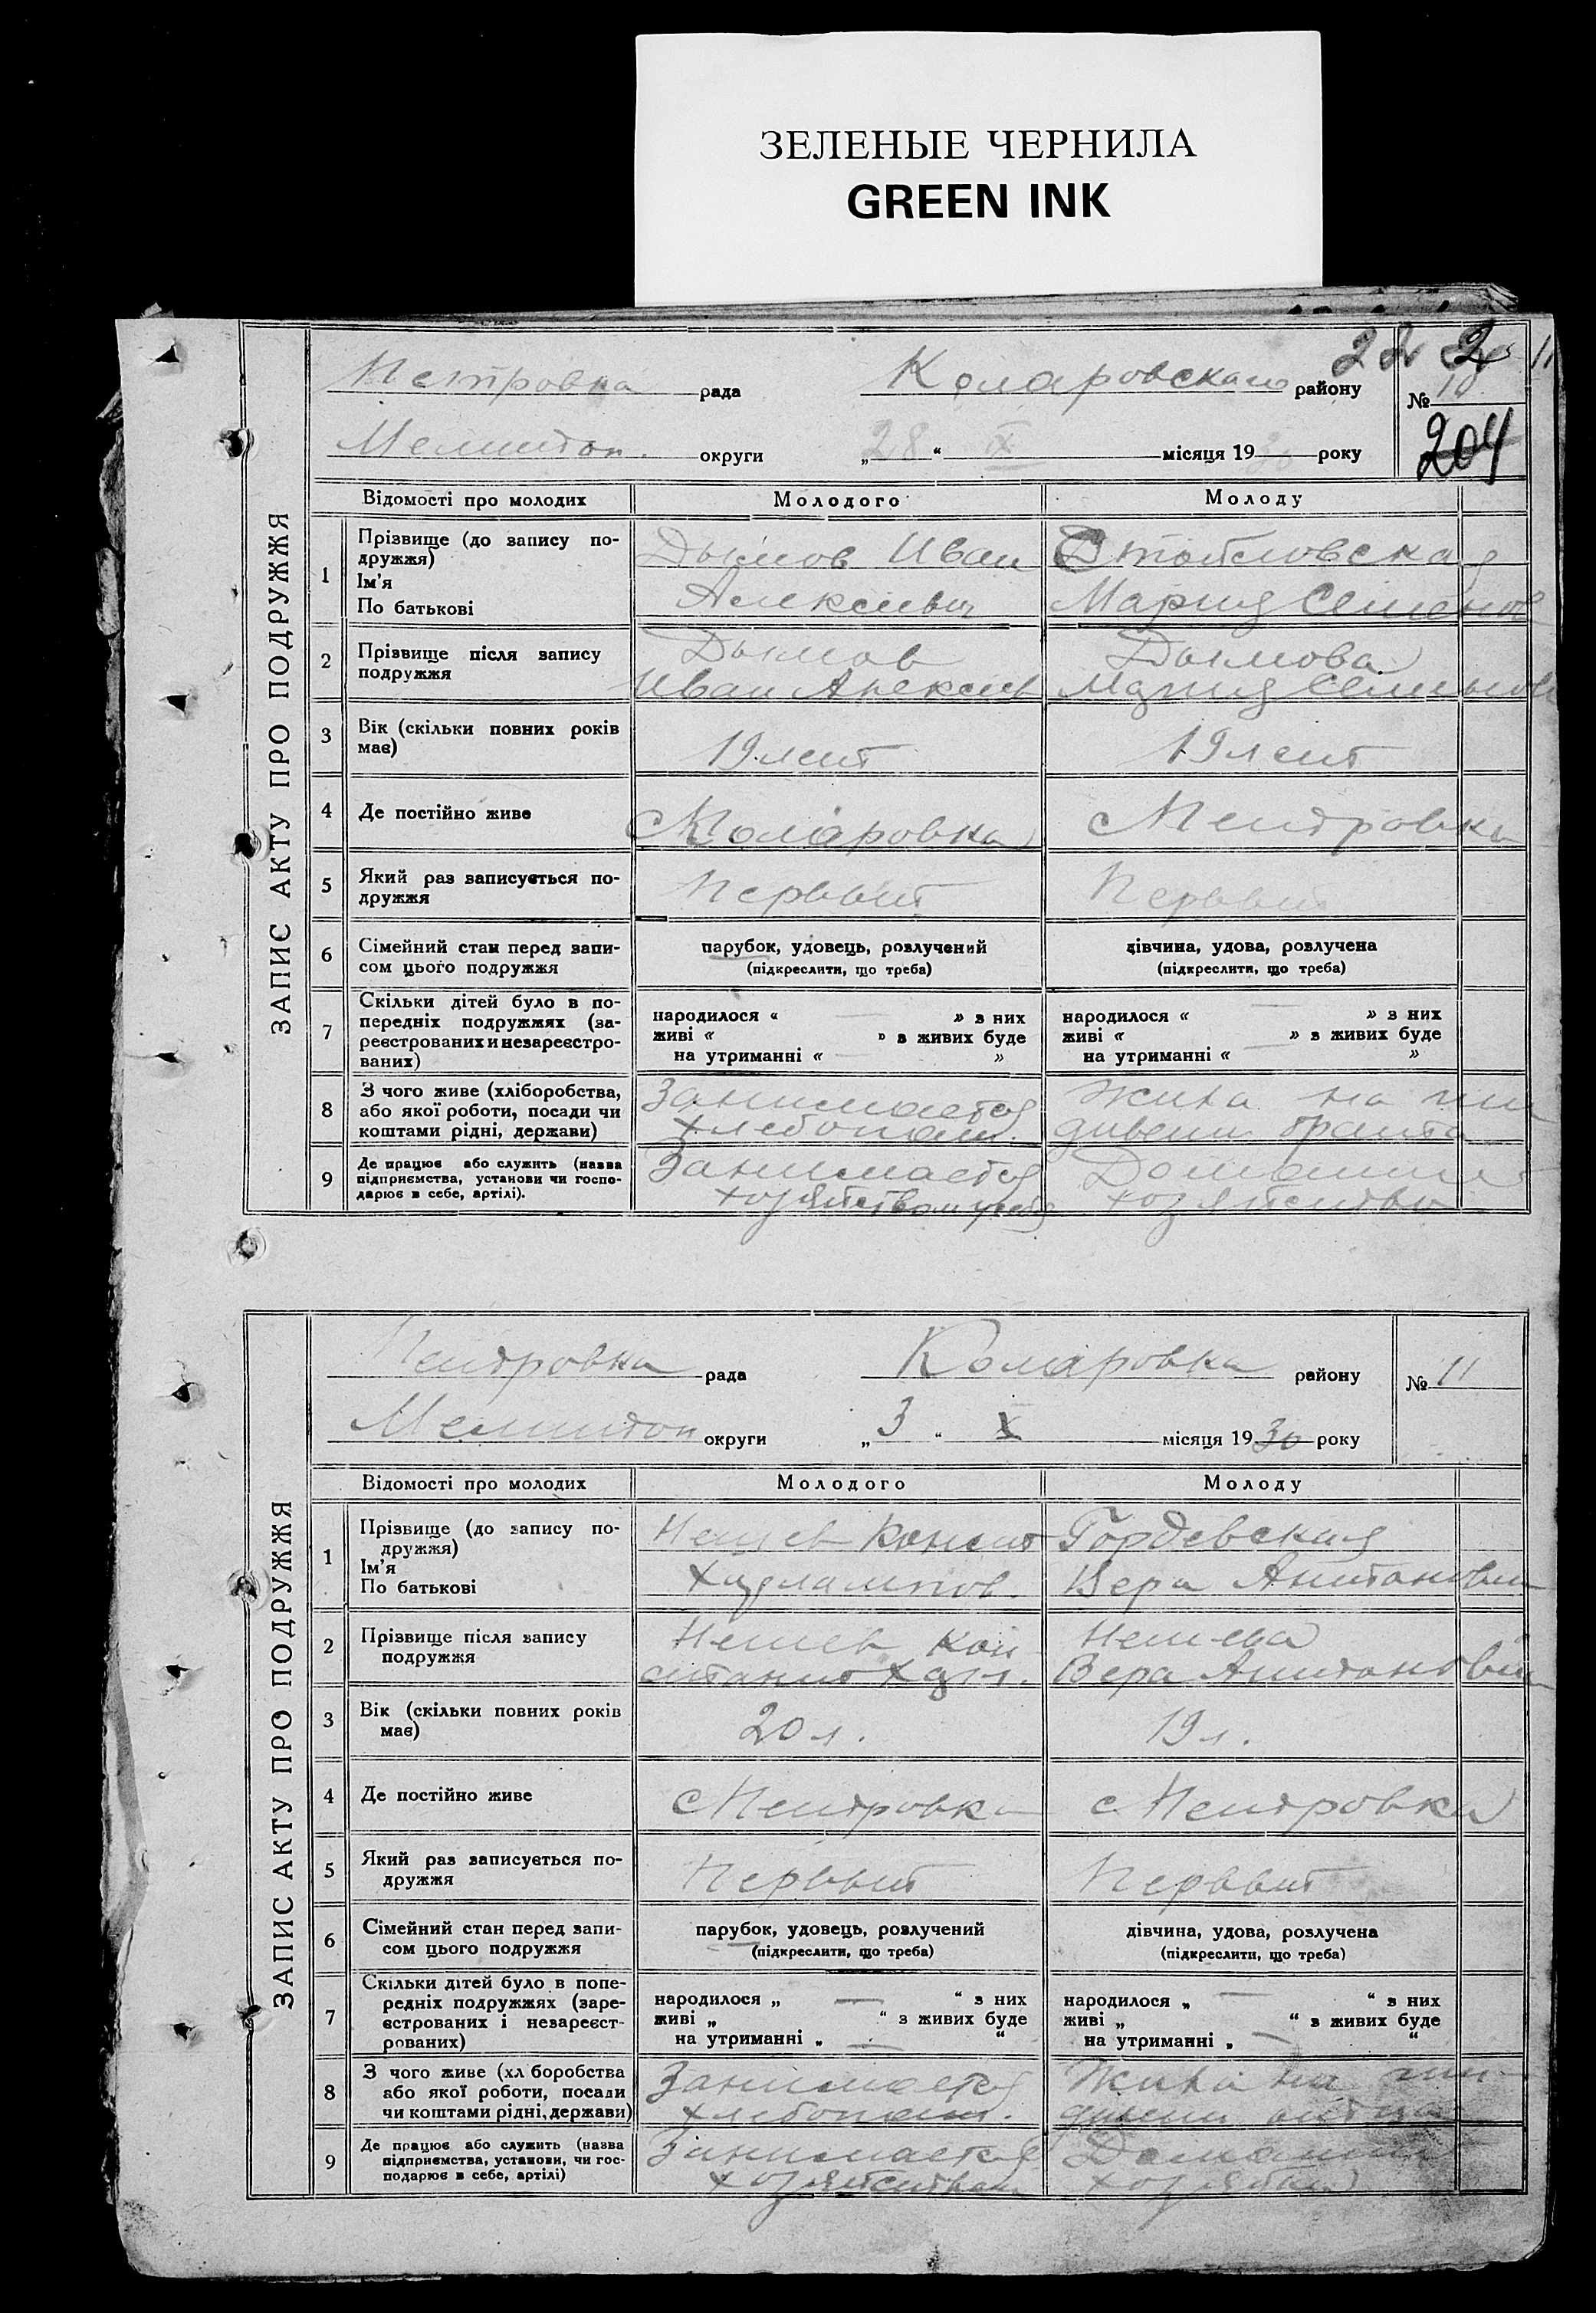 ЗЕЛЕНЫЕ ЧЕРНИЛА
GREEN INK
22 2 11
Петровка рада Коларовскаго району № 10
204
Мелитоп. округи „28“ X місяця 1930 року
ЗАПИС АКТУ ПРО ПОДРУЖЖЯ
Відомості про молодих Молодого Молоду
1 Прізвище (до запису по-
дружжя)
Ім'я
По батькові
Дымов Иван
Алексеевич
Мария Семенов
2 Прізвище після запису
подружжя
Дымов
Иван Алексеев
Дымова
Мария Семенов
3 Вік (скільки повних років
має)
19 лет
19 лет
4 Де постійно живе
с Коларовка
с Петровка
5 Який раз записується по-
дружжя
Первый
Первый
6 Сімейний стан перед запи-
сом цього подружжя
парубок, удовець, розлучений
(підкреслити, що треба)
дівчина, удова, розлучена
(підкреслити, що треба)
7 Скільки дітей було в по-
передніх подружжях (за-
реєстрованих и незареєстро-
ваних)
народилося « — » з них
живі « » з живих буде
на утриманні « — »
народилося « — » з них
живі « » з живих буде
на утриманні « — »
8 З чого живе (хліборобства,
або якої роботи, посади чи
коштами рідні, держави)
Занимается
хлебопаш.
Жила на иж
дивении брата
9 Де працює або служить (назва
підприємства, установи чи госпо-
дарює в себе, артілі).
Занимается
хозяйством
Домашнее
хозяйство
Петровка рада Коларовка району № 11
Мелитоп округи „3“ X місяця 1930 року
ЗАПИС АКТУ ПРО ПОДРУЖЖЯ
Відомості про молодих Молодого Молоду
1 Прізвище (до запису по-
дружжя)
Ім'я
По батькові
Нешев Конст
Харлампов.
Гордевская
Вера Антоновна
2 Прізвище після запису
подружжя
Нешев Кон
стант Харл.
Нешева
Вера Антоновна
3 Вік (скільки повних років
має)
20 л.
19 л.
4 Де постійно живе
с Петровка
с Петровка
5 Який раз записується по-
дружжя
Первый
Первый
6 Сімейний стан перед запи-
сом цього подружжя
парубок, удовець, розлучений
(підкреслити, що треба)
дівчина, удова, розлучена
(підкреслити, що треба)
7 Скільки дітей було в попе-
редніх подружжях (заре-
єстрованих і незареєст-
рованих)
народилося „ — “ з них
живі „ “ з живих буде
на утриманні „ — “
народилося „ — “ з них
живі „ “ з живих буде
на утриманні „ — “
8 З чого живе (хл боробства
або якої роботи, посади
чи коштами рідні, держави)
Занимается
хлебопаш.
Жила на иж
дивении отца
9 Де працює або служить (назва
підприємства, установи, чи гос-
подарює в себе, артілі)
Занимается
хозяйством
Домашнее